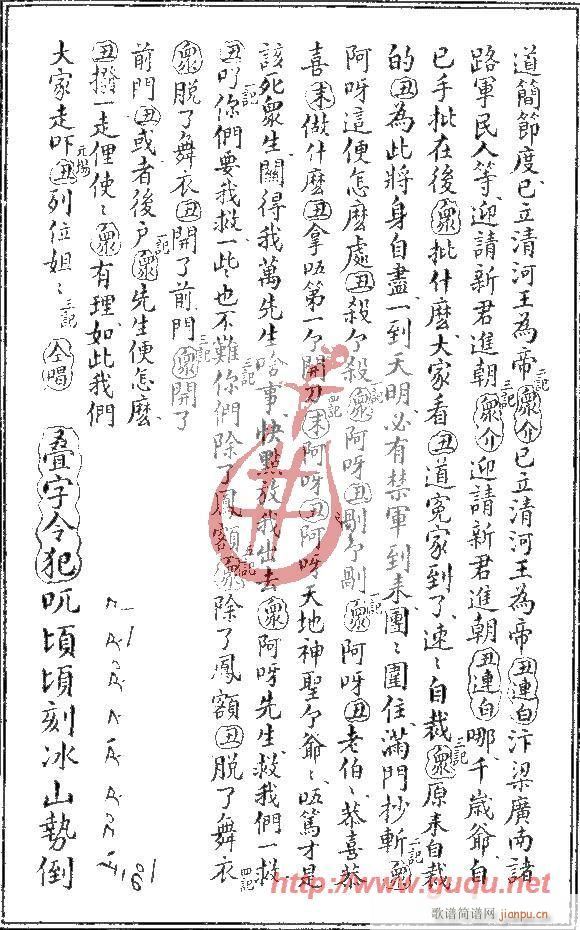 道簡節度已立清河王為帝衆介已立清河王為帝丑連白汴梁廣南諸
路軍民人等迎請新君進朝衆介迎請新君進朝丑連白哪千歲爺自
已手批在後衆批什麽大家看丑道冤家到了速〻自裁衆原来自裁
的丑為此將身自盡一到天明必有禁軍到来團〻圍住滿門抄斬衆
阿呀這便怎麽處丑殺介殺衆阿呀丑剮介剮衆阿呀丑老伯〻恭喜恭
喜末做什麽丑拿唔第一介開刀末阿呀丑阿呀天地神聖介爺〻唔篤才是
該死衆生關得我萬先生啥事快點放我出去衆阿呀先生救我們一救
丑吖你們要我救一些也不難你們除了鳳額衆除了鳳額丑脱了舞衣
衆脱了舞衣丑開了前門衆開了
前門丑或者後户衆先生便怎麽
丑撥一走俚使〻衆有理如此我們
大家走吓丑列位姐〻仝唱
叠字令犯 吭頃頃刻冰山勢倒
http://www.guqu.net
歌谱简谱网
jianpu.cn